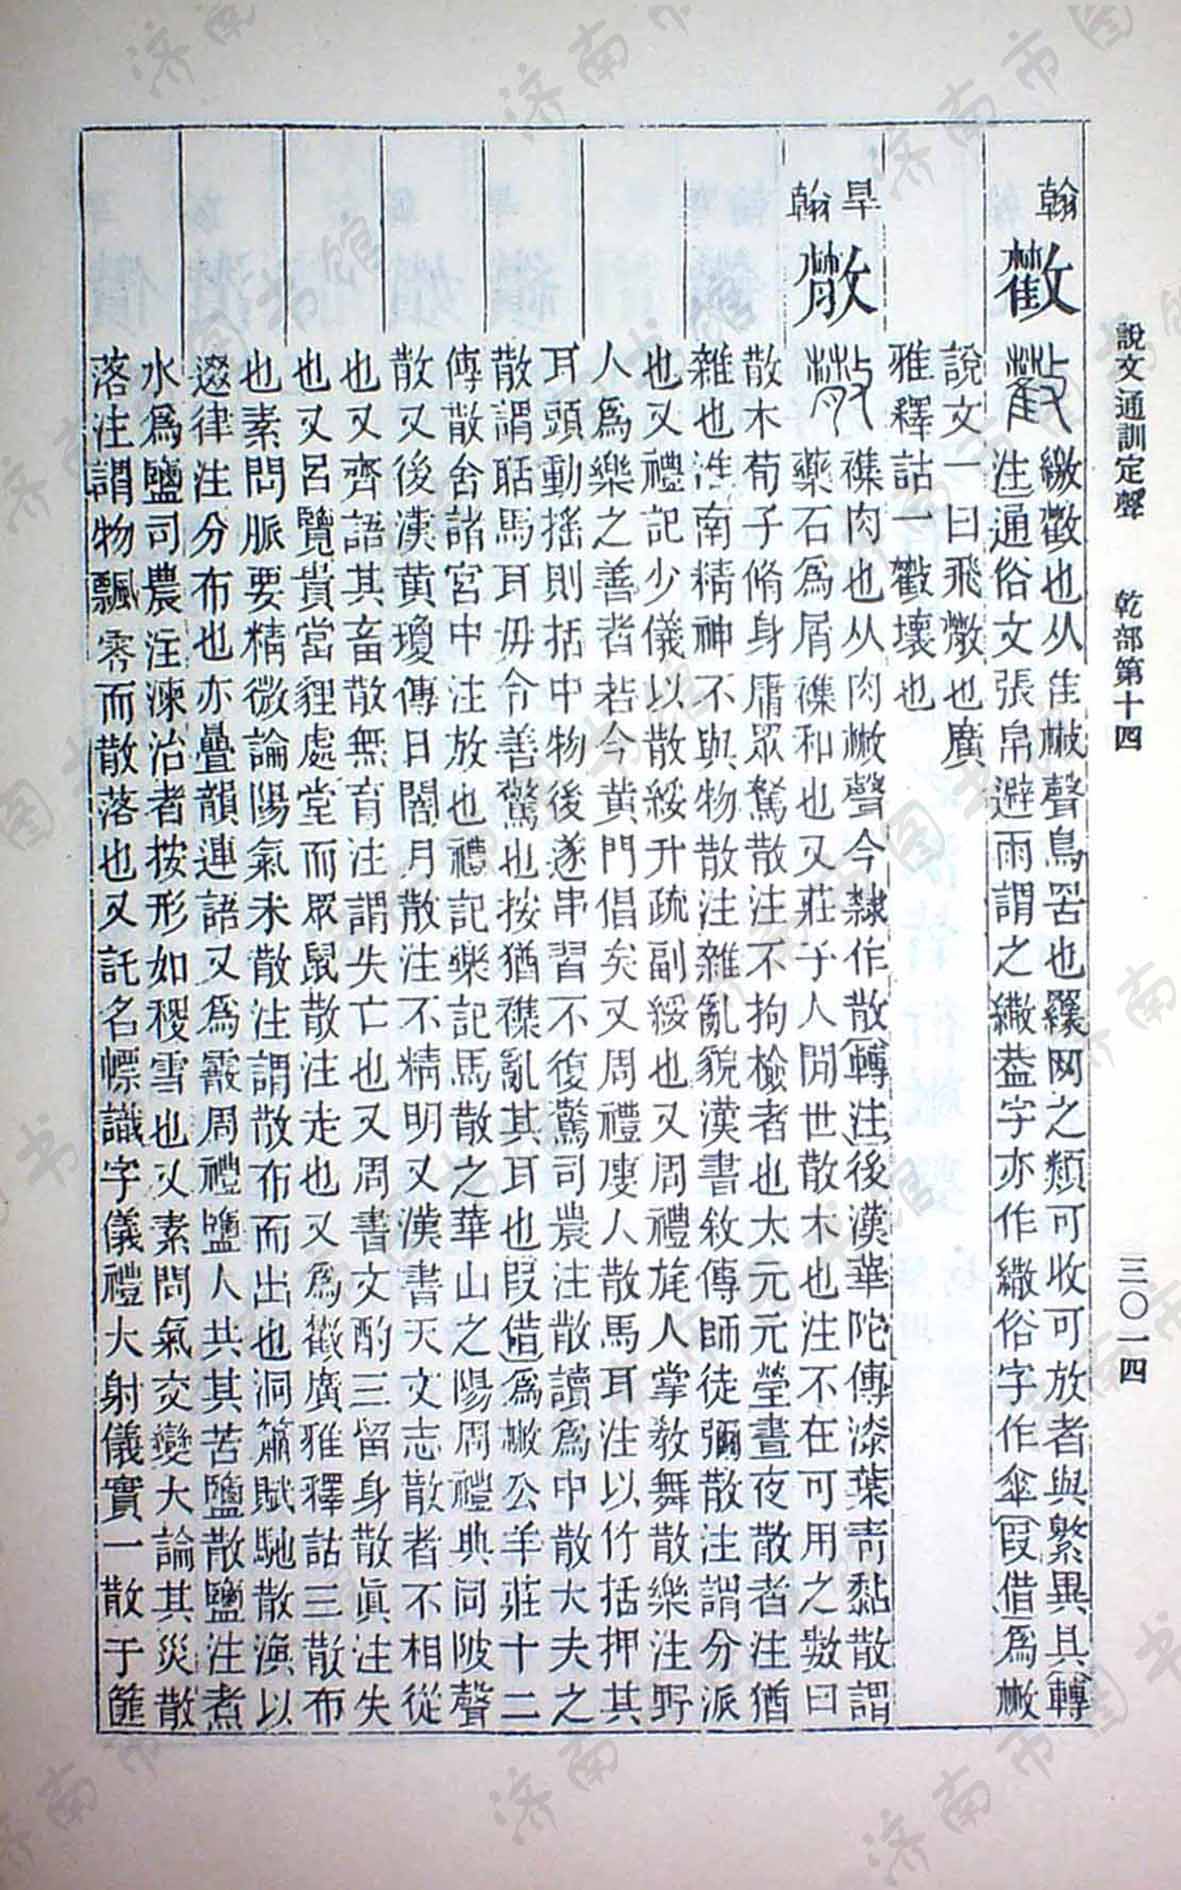 說文通訓定聲 乾部第十四 三〇一四
翰 繖也从隹㪔聲鳥罟也羅网之類可收可放者與繁異具轉
注通俗文張帛避雨謂之繖葢字亦作繖俗字作傘叚借爲㪔
說文一曰飛㪔也廣
雅釋詁一壞也
旱 翰 襍肉也从肉㪔聲今隸作散轉注後漢華陀傳漆葉青黏散謂
藥石爲屑襍和也又莊子人閒世散木也注不在可用之數曰
散木荀子脩身庸眾駑散注不拘檢者也太元元瑩晝夜散者注猶
雜也淮南精神不與物散注雜亂貌漢書敘傳師徒彌散注謂分派
也又禮記少儀以散綏升疏副綏也又周禮旄人掌敎舞散樂注野
人爲樂之善者若今黃門倡矣又周禮廋人散馬耳注以竹括押其
耳頭動搖則括中物後遂串習不復驚司農注散讀爲中散大夫之
散謂聒馬耳毋令善驚也按猶襍亂其耳也叚借爲㪔公羊莊十二
傳散舍諸宮中注放也禮記樂記馬散之華山之陽周禮典同陂聲
散又後漢黃瓊傳日闇月散注不精明又漢書天文志散者不相從
也又齊語其畜散無育注謂失亡也又周書文酌三畱身散眞注失
也又呂覽貴當貍處堂而眾鼠散注走也又爲廣雅釋詁三散布
也素問脈要精微論陽氣未散注謂散布而出也洞簫賦馳散渙以
逫律注分布也亦疊韻連語又爲霰周禮鹽人共其苦鹽散鹽注煮
水爲鹽司農注湅治者按形如稷雪也又素問氣交變大論其災散
落注謂物飄零而散落也又託名幖識字儀禮大射儀實一散于篚